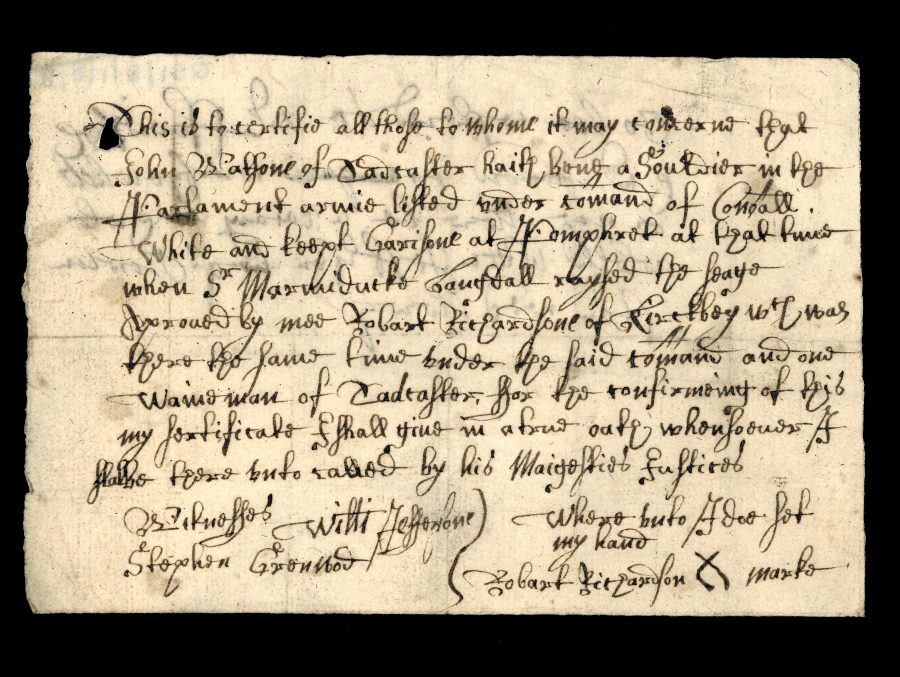 This is to certifie all those to whome it may concerne that
John Watsone of Tadcaster haith bene a Souldier in the
Parlament armie listed under comand of Conall
White and keept Garisone at Pomphret at that time
when Sr Marmiducke Langdall raysed the seage
Aproved by mee Robart Richardsone of Kirckbey wch was
there the same time under the said comand and one
Waineman of Tadcaster, for the confirmeing of this
my sertificate I shall give in a true oath whensoever I
shalbe there unto called by his Maigesties Justices
Witnesses Willi Jeffersone Where unto I doe set
my hand
Stephen Grenwod
Robart Richardson X marke